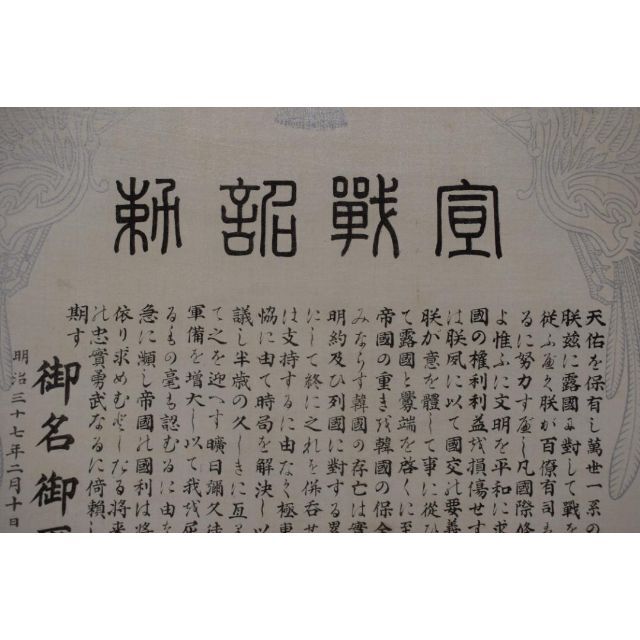 宣戰詔勅
天佑を保有し萬世一系の
朕茲に露國に對して戰を
從ふ可く朕が百僚有司も
るに努力す可し凡國際條
よ惟ふに文明を平和に求
國の權利利益を損傷せす
は朕夙に以て國交の要義
朕が意を體して事に從ひ
て露國と釁端を啓くに至
帝國の重きを韓國の保全
みならす韓國の存亡は實
明約及ひ列國に對する累
にして終に之れを併呑せ
は支持するに由なく極東
協に由て時局を解決し以
議し半歳の久しきに亙
て之を迎へす曠日彌久徒
軍備を增大し以て我を屈
るもの毫も認むるに由な
急に瀕し帝國の國利は將
依り求めむとしたる將來
の忠實勇武なるに倚賴し
期す
御名御
明治三十七年二月十日